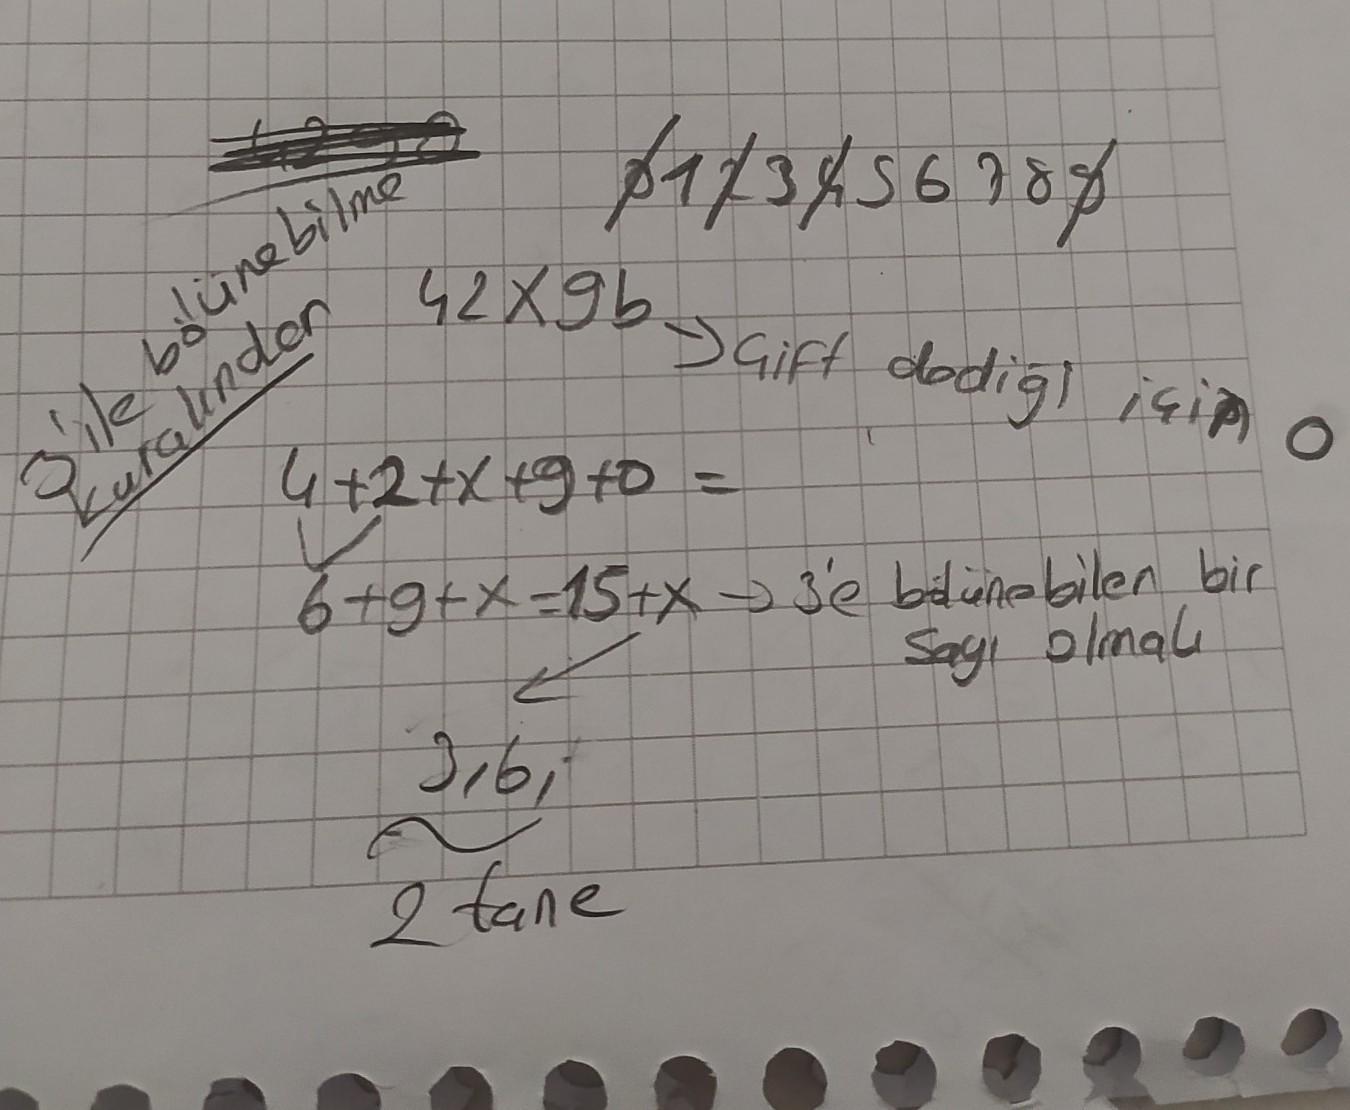 0 1 2 3 4 5 6 7 8 9
3 ile bölünebilme
kuralından
42X9b
→ Çift dediği için 0
4+2+x+9+0 =
6+9+x=15+x → 3'e bölünebilen bir
sayı olmalı
3,6,
2 tane